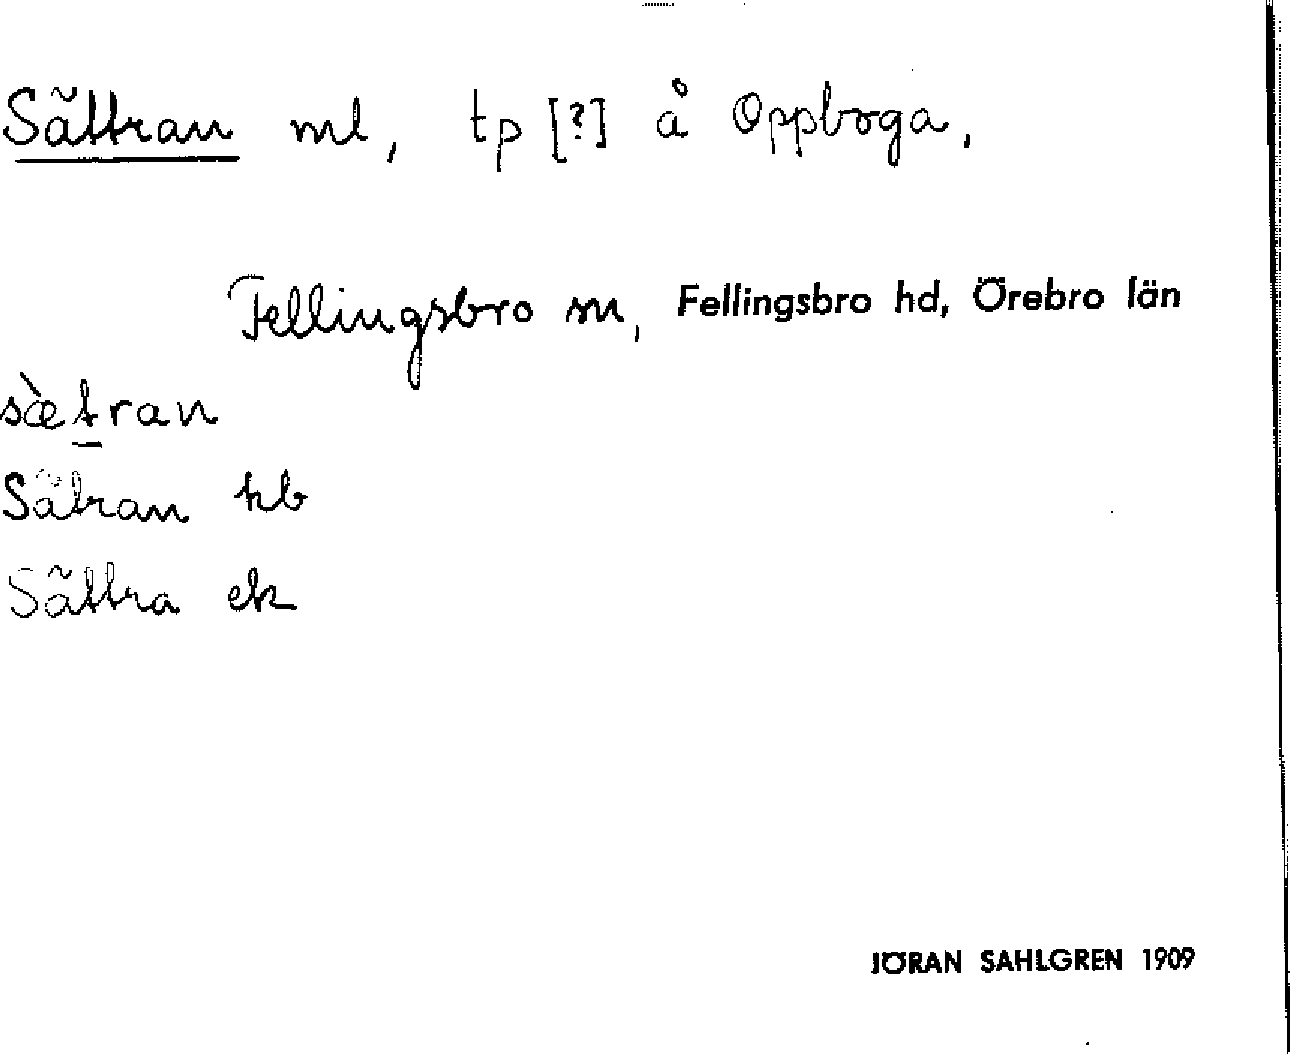 Sättran ml, tp [?] å Oppboga,
Fellingsbro sn, Fellingsbro hd, Örebro län
sæ̀t̲ran
Sätran hb
Sättra ek
JÖRAN SAHLGREN 1909